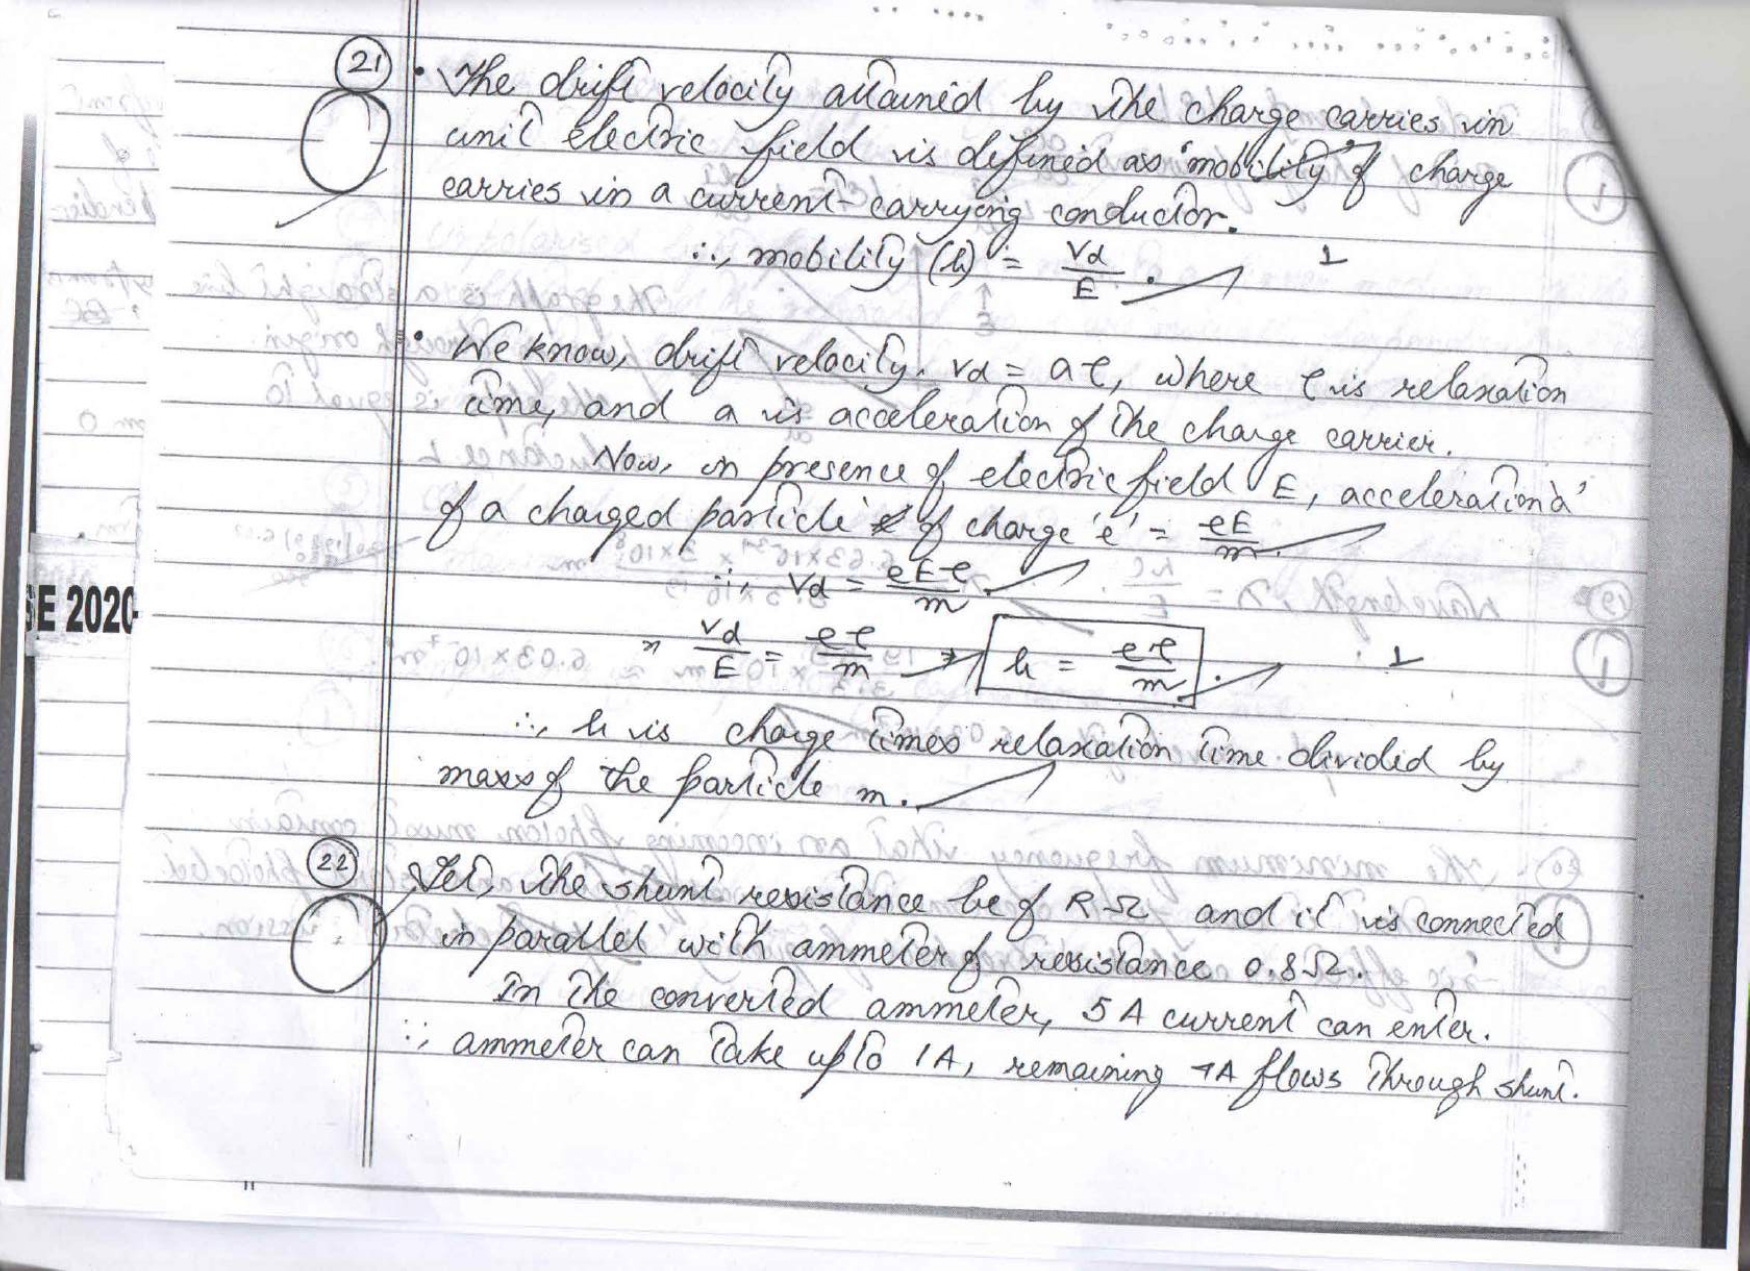 21 • The drift velocity attained by the charge carries in
unit electric field is defined as 'mobility' of charge
carries in a current-carrying conductor.
∴, mobility (μ) = Vd/E. 1
• We know, drift velocity. Vd = aτ, where τ is relaxation
time, and a is acceleration of the charge carrier.
Now, in presence of electric field E, acceleration 'a'
of a charged particle of charge 'e' = eE/m.
∴, Vd = eEτ/m.
⇒ Vd/E = eτ/m ⇒ μ = eτ/m. 1
∴, μ is charge times relaxation time divided by
mass of the particle m.
SE 2020
22 Let, the shunt resistance be of R Ω and it is connected
in parallel with ammeter of resistance 0.8Ω.
In the converted ammeter, 5 A current can enter.
∴, ammeter can take upto 1A, remaining 4A flows through shunt.